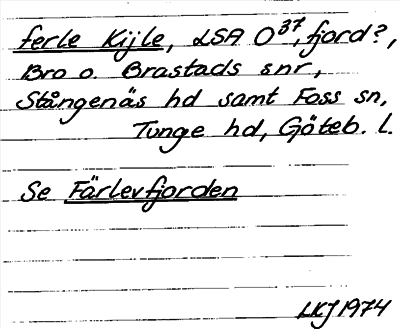 ferle Kijle, LSA O³⁷, fjord?,
Bro o. Brastads snr,
Stångenäs hd samt Foss sn,
Tunge hd, Göteb. l.
Se Färlevfjorden
LKJ 1974